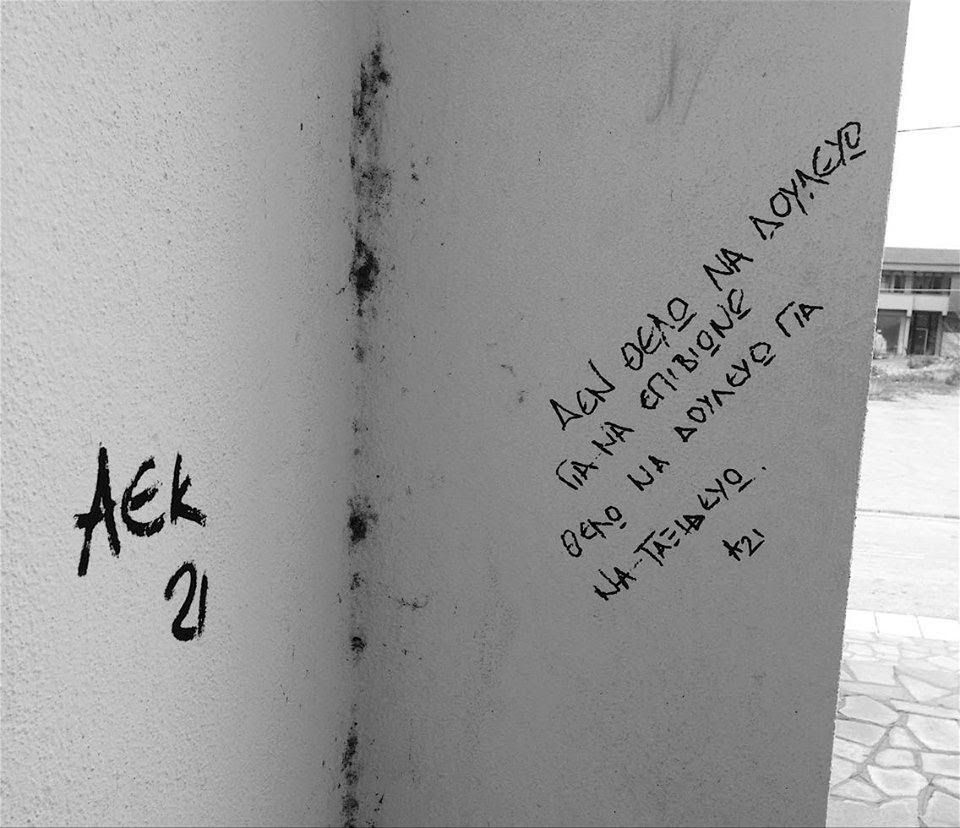 ΑΕΚ
21
ΔΕΝ ΘΕΛΩ ΝΑ ΔΟΥΛΕΥΩ
ΓΙΑ ΝΑ ΕΠΙΒΙΩΝΩ
ΘΕΛΩ ΝΑ ΔΟΥΛΕΥΩ ΓΙΑ
ΝΑ ΤΑΞΙΔΕΥΩ.
Α21